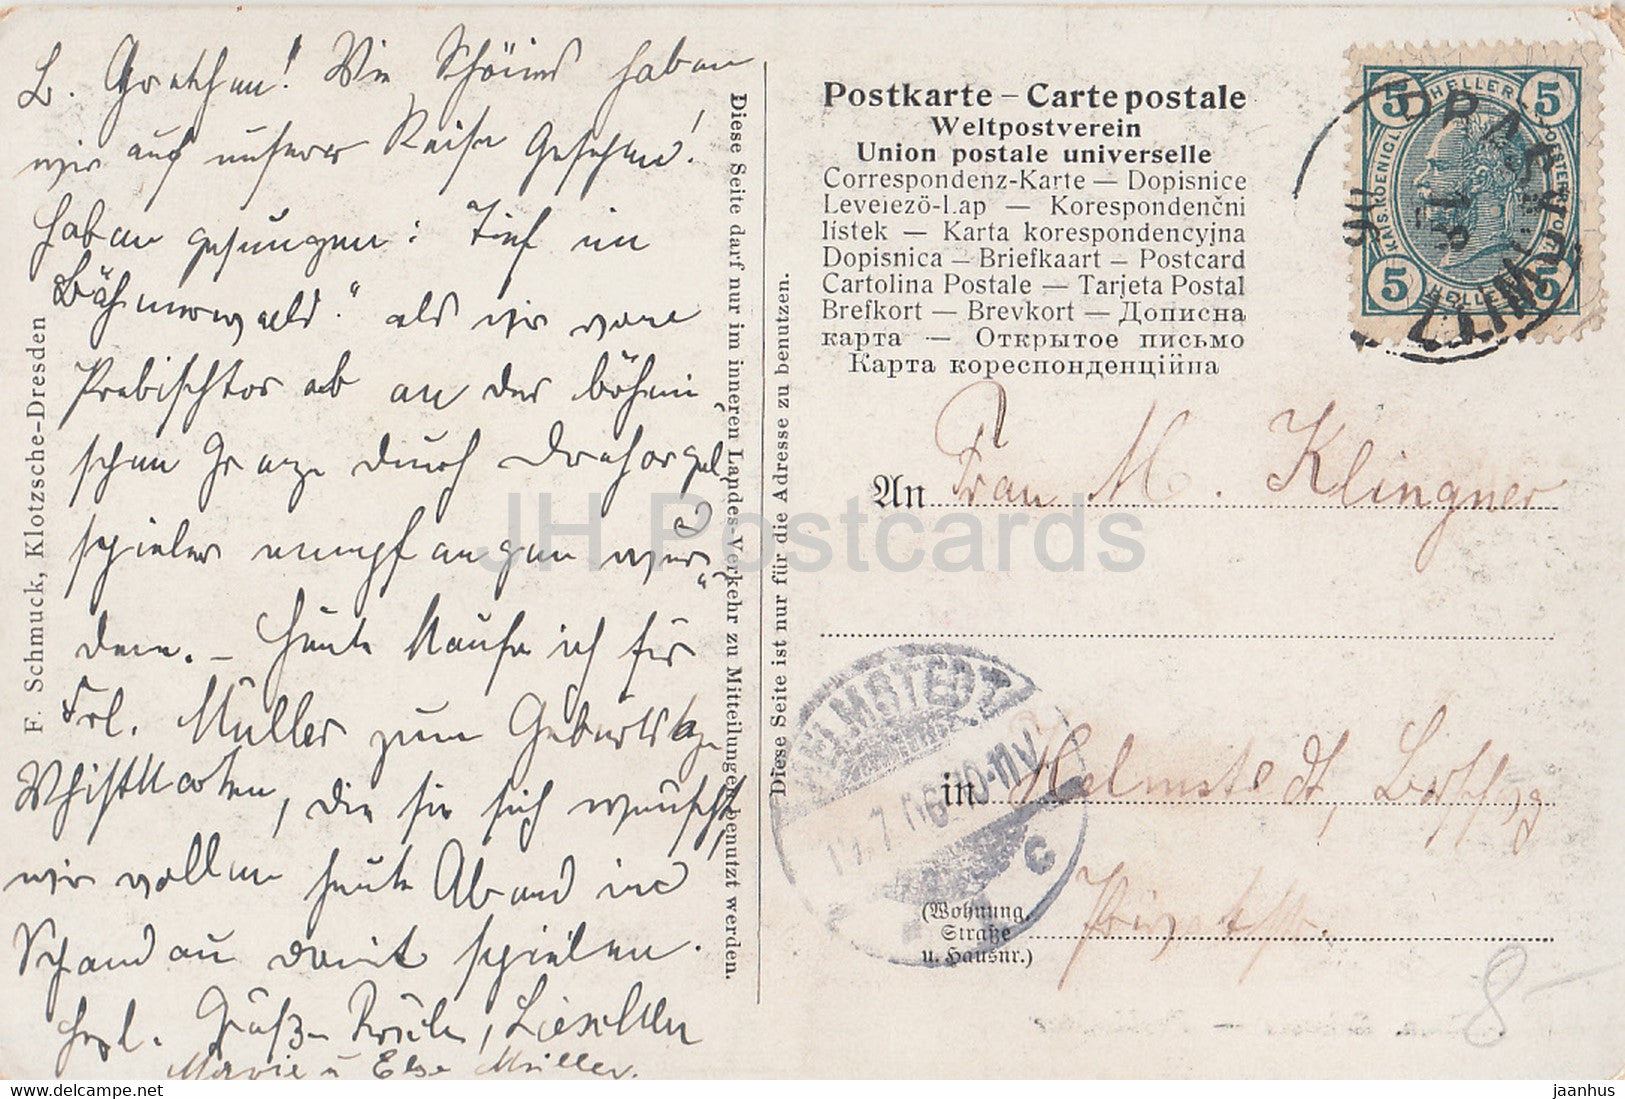 L. Gretchen! Wie Schönes haben
wir auf unserer Reise gesehen!
Haben gesungen: „Tief im
Böhmerwald“ als wir vom
Prebischtor ab an der böhmi
schen Grenze durch Drehorgel
spieler empfangen wur
den. – Heute kaufe ich für
Frl. Müller zum Geburtstage
Whistkarten, die sie sich wünscht,
wir wollen heute Abend in
Schandau damit spielen.
Herzl. Grüße
Marie u Else Müller.
F. Schmuck, Klotzsche-Dresden
Diese Seite darf nur im inneren Landes-Verkehr zu Mitteilungen benutzt werden.
Diese Seite ist nur für die Adresse zu benutzen.
Postkarte – Carte postale
Weltpostverein
Union postale universelle
Correspondenz-Karte — Dopisnice
Levelező-Lap — Korespondenční
lístek — Karta korespondencyjna
Dopisnica — Briefkaart — Postcard
Cartolina Postale — Tarjeta Postal
Brefkort — Brevkort — Дописна
карта — Открытое письмо
Карта кореспонденційна
5 HELLER 5
KAIS. KOENIGL. OESTERR. POST
5 HELLER 5
PRAEBISCHTOR
06
An Frau M. Klingner
in Helmstedt,
(Wohnung, Straße u. Hausnr.)
HELMSTEDT
7.06.10-11V
c
8-
JH Postcards
https://www.hippostcard.com
jaanhus